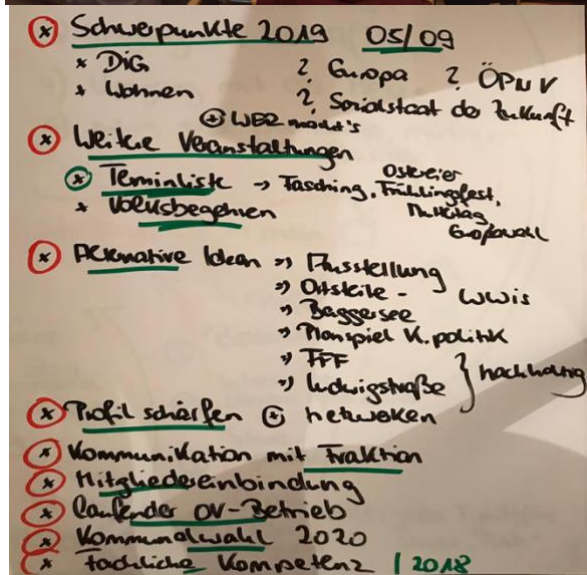 Schwerpunkte 2019 05/09
* DiG ? Europa ? ÖPNV
* Wohnen ? Sozialstaat der Zukunft
⊕ WER macht's
Weitere Veranstaltungen
Terminliste -> Fasching, Ostereier
Frühlingsfest,
Muttertag
Europawahl
* Volksbegehren
Alternative Ideen => Ausstellung
=> Ortsteile - wwis
=> Baggersee
=> Planspiel K.politik
=> FFF
=> Ludwigstraße } nachhaltig
Profil schärfen ⊕ netzwerken
Kommunikation mit Fraktion
Mitgliedereinbindung
laufender OV-Betrieb
Kommunalwahl 2020
fachliche Kompetenz | 2018